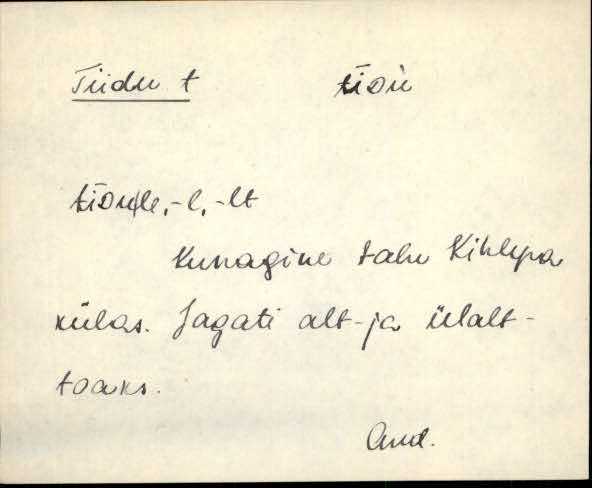 Tiidu t tīᴅu̇
tīᴅule, -l, -lt
Kunagine talu Kihlepa
külas. Jagati alt- ja ülalt-
toaks.
And.